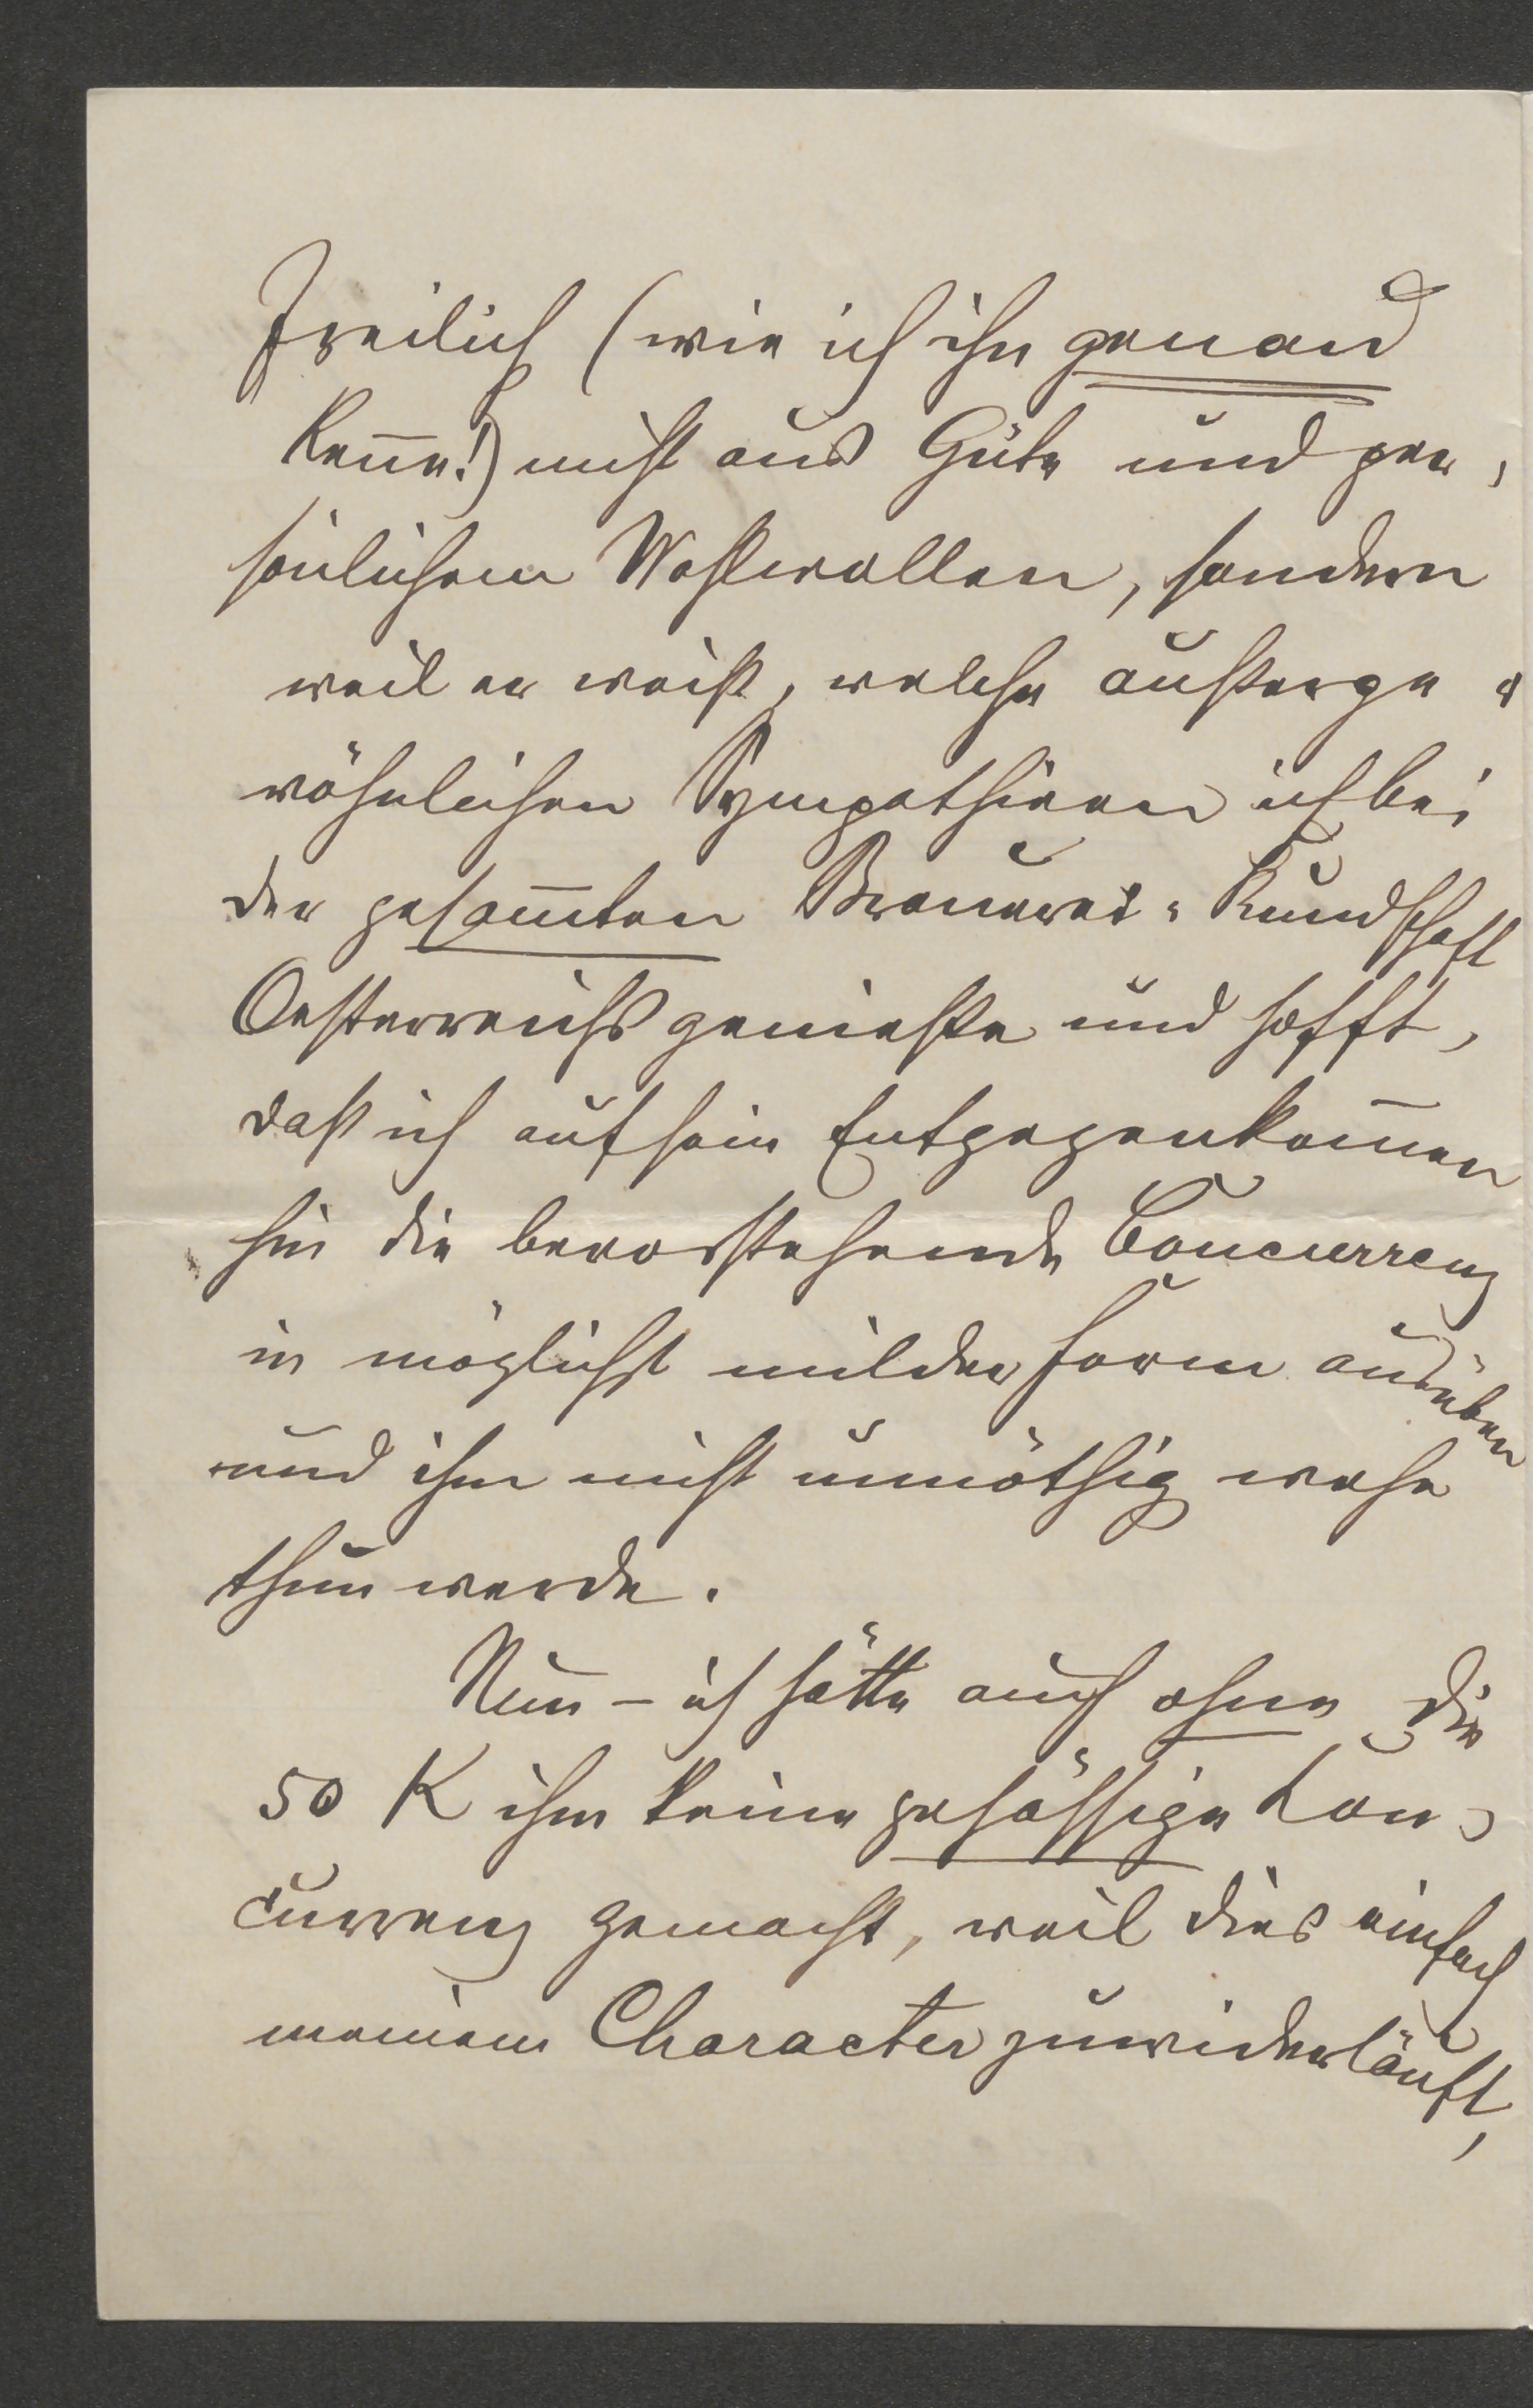 Freilich (wie ich ihn genau
kenne!) nicht aus Güte und per-
sönlichem Wohlwollen, sondern
weil er weiß, welche außerge-
wöhnlichen Sympathieen ich bei
der gesam̅ten Brauerei-Kundschaft
Oesterreichs genieße und hofft,
daß ich auf sein Entgegenkom̅en
hin die bevorstehende Concurrenz
in möglichst milder Form ausüben
und ihm nicht unnöthig wehe
thun werde.
Nun – ich hätte auch ohne die
50 K ihm keine gehässige Con-
currenz gemacht, weil dies einfach
meinem Character zuwiderläuft,